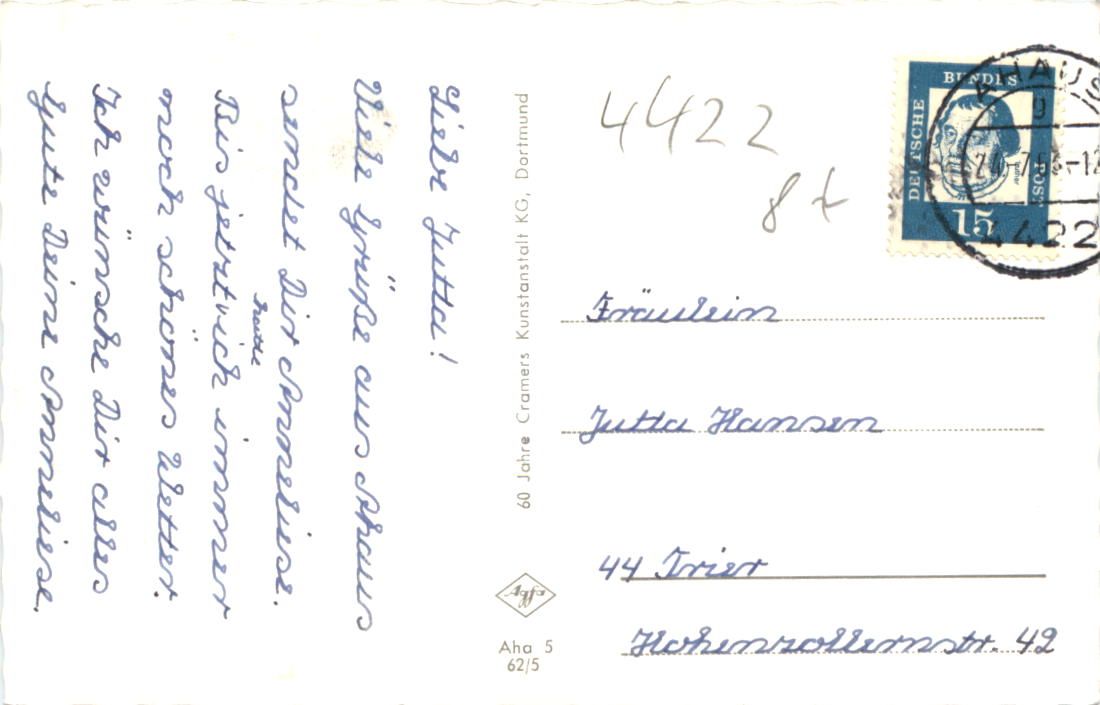 Liebe Jutta!
Viele Grüße aus Ahaus
sendet Dir Anneliese.
hatte
Bis jetzt ich immer
noch schönes Wetter.
Ich wünsche Dir alles
Gute Deine Anneliese.
60 Jahre Cramers Kunstanstalt KG, Dortmund
Agfa
Aha 5
62/5
4422
8 t
DEUTSCHE
BUNDES
POST
15
Luther
AHAUS
g
-7.63-12
4422
Fräulein
Jutta Hansen
44 Trier
Hohenzollernstr. 42